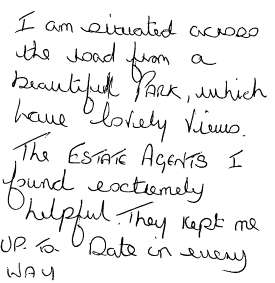 I am situated across
the road from a
beautifull PARK, which
have lovely Views.
The ESTATE AGENTS I
found exctremely
helpful. They kept me
UP. To Date in every
WAY